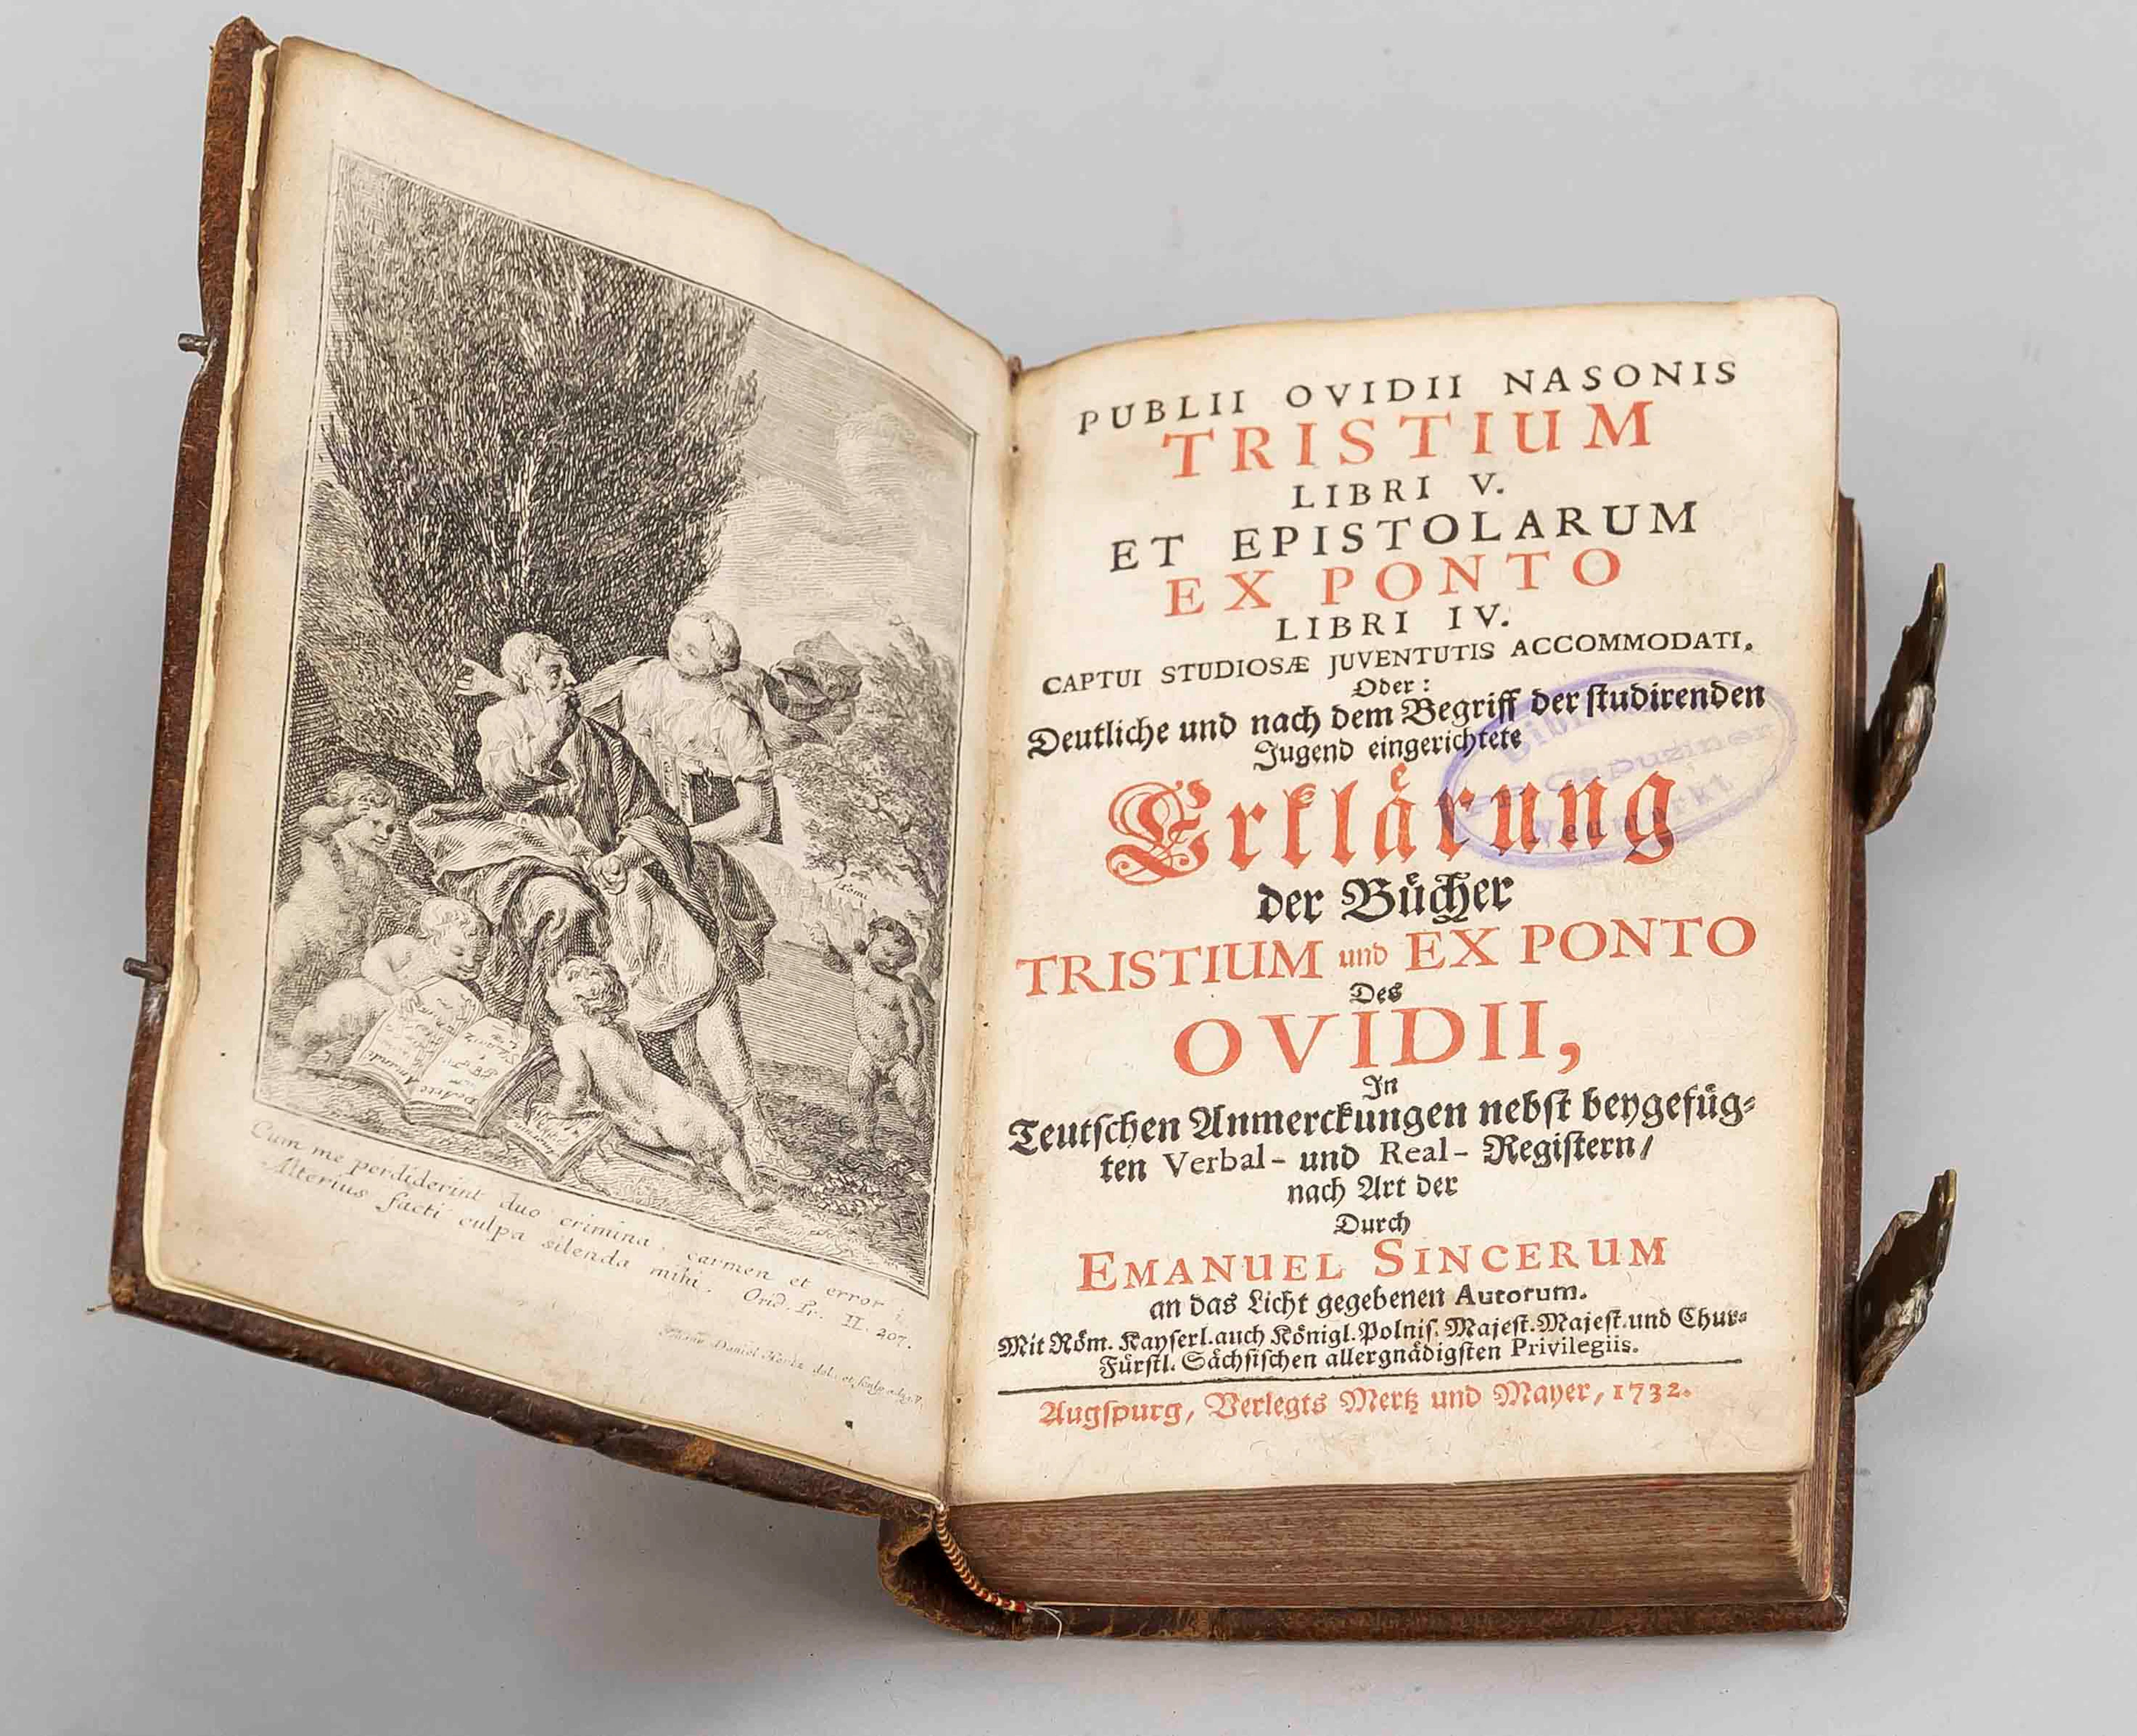 Cum me perdiderint duo crimina, carmen et error;
Alterius facti culpa silenda mihi.
Ovid. Tr. II. 207.
Daniel Hertz del. et sculp.
PUBLII OVIDII NASONIS
TRISTIUM
LIBRI V.
ET EPISTOLARUM
EX PONTO
LIBRI IV.
CAPTUI STUDIOSÆ JUVENTUTIS ACCOMMODATI,
Oder:
Deutliche und nach dem Begriff der studirenden
Jugend eingerichtete
Erklaͤrung
der Buͤcher
TRISTIUM und EX PONTO
Des
OVIDII,
In
Teutschen Anmerckungen nebst beygefuͤg-
ten Verbal- und Real- Registern/
nach Art der
Durch
EMANUEL SINCERUM
an das Licht gegebenen Autorum.
Mit Roͤm. Kayserl. auch Koͤnigl. Polnis. Majest. Majest. und Chur-
Fuͤrstl. Saͤchsischen allergnaͤdigsten Privilegiis.
Augspurg, Verlegts Mertz und Mayer, 1732.
PP. Capuziner
Neumarkt